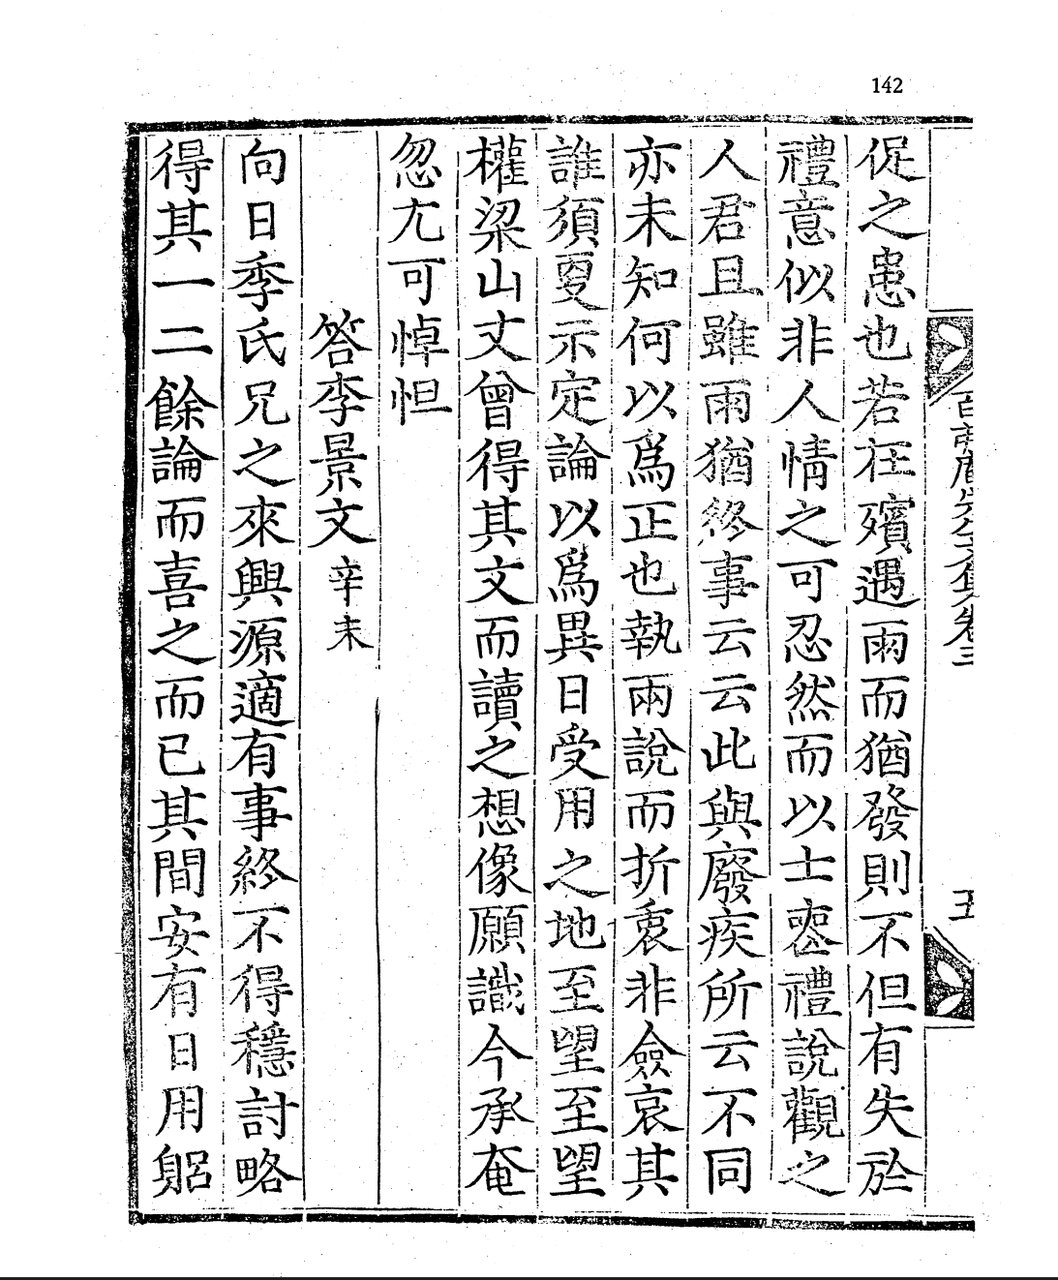 142
促之患也若在殯遇雨而猶發則不但有失於
禮意似非人情之可忍然而以士喪禮說觀之
人君且雖雨猶終事云云此與廢疾所云不同
亦未知何以爲正也執兩說而折衷非僉哀其
誰須更示定論以爲異日受用之地至望至望
權梁山丈曾得其文而讀之想像願識今承奄
忽尤可悼怛
答李景文辛未
向日季氏兄之來興源適有事終不得穩討略
得其一二餘論而喜之而已其間安有日用躬
先生文集卷三
五